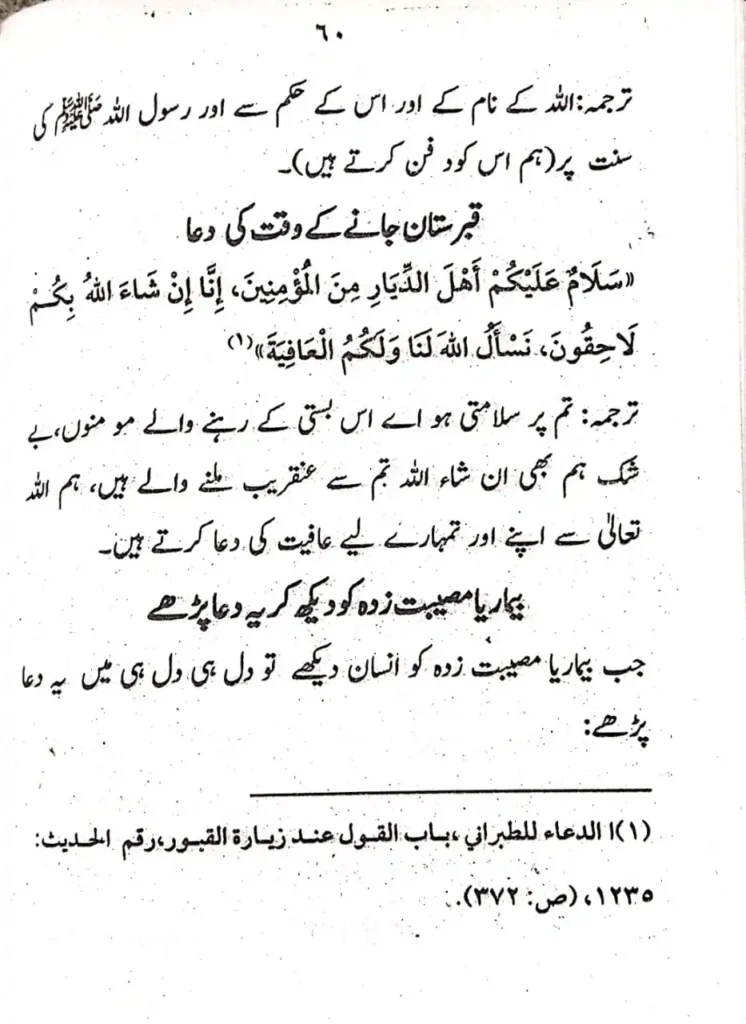 ٦٠
ترجمہ: اللہ کے نام کے اور اس کے حکم سے اور رسول اللہ ﷺ کی
سنت پر (ہم اس کو دفن کرتے ہیں)۔
قبرستان جانے کے وقت کی دعا
«سَلَامٌ عَلَيْكُمْ أَهْلَ الدِّيَارِ مِنَ الْمُؤْمِنِينَ، إِنَّا إِنْ شَاءَ اللهُ بِكُمْ
لَاحِقُونَ، نَسْأَلُ اللهَ لَنَا وَلَكُمُ الْعَافِيَةَ»(١)
ترجمہ: تم پر سلامتی ہو اے اس بستی کے رہنے والے مومنوں، بے
شک ہم بھی ان شاء اللہ تم سے عنقریب ملنے والے ہیں، ہم اللہ
تعالیٰ سے اپنے اور تمہارے لیے عافیت کی دعا کرتے ہیں۔
بیمار یا مصیبت زدہ کو دیکھ کر یہ دعا پڑھے
جب بیمار یا مصیبت زدہ کو انسان دیکھے تو دل ہی دل ہی میں یہ دعا
پڑھے:
(١) ا الدعاء للطبراني، باب القول عند زيارة القبور، رقم الحديث:
١٢٣٥، (ص: ٣٧٢).